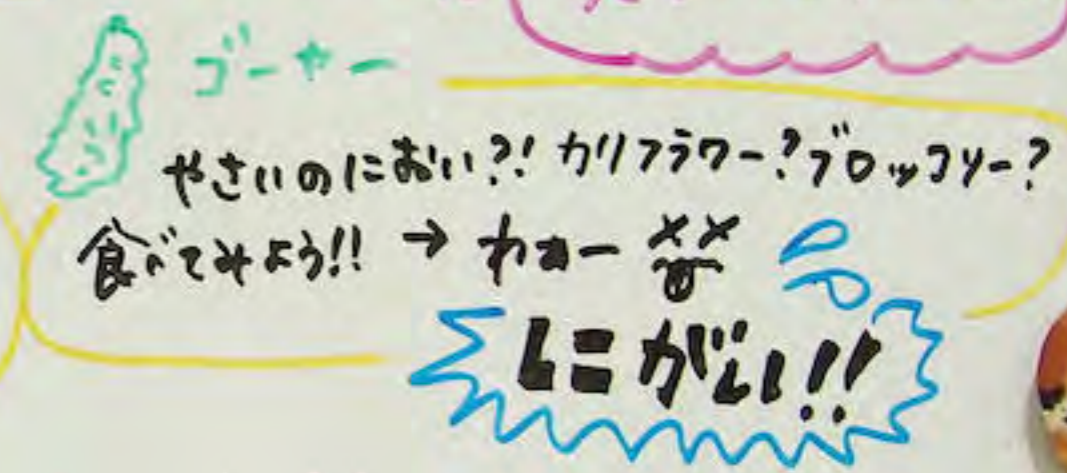 ゴーやー
やさいのにおい?! カリフラワー?ブロッコリー?
食べてみよう!! → わぁー
にがい!!